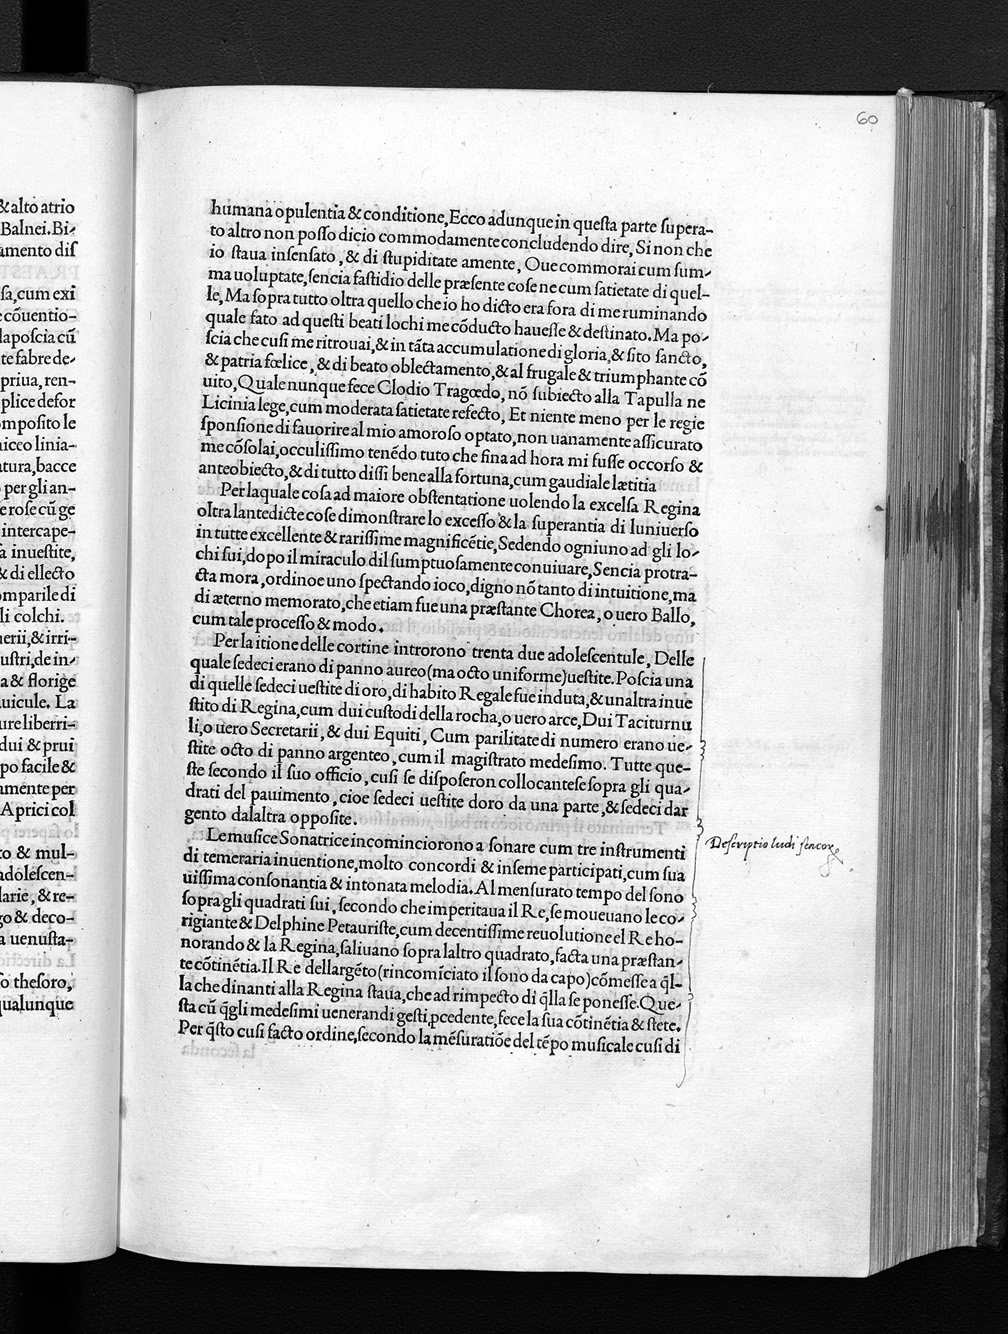 60
&alto atrio
Balnei.Bi-
amento diſ
ſa,cum exi
cõuentio-
lapoſcia cũ
te fabre de-
priua, ren-
plice defor
mpoſito le
nicco linia-
atura,bacce
per gli an-
e roſe cũ ge
intercape-
inueſtite,
& di ellecto
omparile di
li colchi.
nerii,& irri-
uſtri,de in-
a & florige
uicule. La
ure liberri-
dui & prui
po facile &
amente per
Aprici col
to & mul-
adoleſcen-
larie, & re-
go & deco-
a uenuſta-
ſo theſoro,
qualunque
humana opulentia & conditione, Ecco adunque in queſta parte ſupera-
to altro non poſſo dicio commodamente concludendo dire, Si non che
io ſtaua inſenſato, & di ſtupiditate amente, Oue commorai cum ſum-
ma uoluptate, ſencia faſtidio delle præſente coſe ne cum ſatietate di quel-
le, Ma ſopra tutto oltra quello che io ho dicto era fora di me ruminando
quale fato ad queſti beati lochi me cõducto haueſſe & deſtinato. Ma po-
ſcia che cuſi me ritrouai, & in tãta accumulatione di gloria, & ſito ſancto,
& patria fœlice, & di beato oblectamento, & al frugale & triumphante cõ
uito, Quale nunque fece Clodio Tragœdo, nõ ſubiecto alla Tapulla ne
Licinia lege, cum moderata ſatietate refecto, Et niente meno per le regie
ſponſione di fauorire al mio amoroſo optato, non uanamente aſſicurato
me cõſolai, occuliſſimo tenédo tuto che fina ad hora mi fuſſe occorſo &
anteobiecto, & di tutto diſſi bene alla fortuna, cum gaudiale lætitia
Per laquale coſa ad maiore obſtentatione uolendo la excelſa Regina
oltra lantedicte coſe dimonſtrare lo exceſſo & la ſuperantia di luniuerſo
in tutte excellente & rariſſime magnificétie, Sedendo ogniuno ad gli lo-
chi ſui, dopo il miraculo dil ſumptuoſamente conuiuare, Sencia protra-
cta mora, ordinoe uno ſpectando ioco, digno nõ tanto di intuitione, ma
di æterno memorato, che etiam fue una præſtante Chorea, o uero Ballo,
cum tale proceſſo & modo.
Per la itione delle cortine introrono trenta due adoleſcentule, Delle
quale ſedeci erano di panno aureo (ma octo uniforme) ueſtite. Poſcia una
di quelle ſedeci ueſtite di oro, di habito Regale fue induta, & unaltra inue
ſtito di Regina, cum dui cuſtodi della rocha, o uero arce, Dui Taciturnu
li, o uero Secretarii, & dui Equiti, Cum parilitate di numero erano ue-
ſtite octo di panno argenteo, cum il magiſtrato medeſimo. Tutte que-
ſte ſecondo il ſuo officio, cuſi ſe diſpoſeron collocanteſe ſopra gli qua-
drati del pauimento, cioe ſedeci ueſtite doro da una parte, & ſedeci dar
gento dalaltra oppoſite.
Le muſice Sonatrice incominciorono a ſonare cum tre inſtrumenti
di temeraria inuentione, molto concordi & inſeme participati, cum ſua
uiſſima conſonantia & intonata melodia. Al menſurato tempo del ſono
ſopra gli quadrati ſui, ſecondo che imperitaua il Re, ſe moueuano le co-
rigiante & Delphine Petauriſte, cum decentiſſime reuolutione el Re ho-
norando & la Regina, ſaliuano ſopra laltro quadrato, facta una præſtan-
te cõtinétia. Il Re dellargéto (rincomíciato il ſono da capo) cõmeſſe a q̃l-
la che dinanti alla Regina ſtaua, che ad rimpecto di q̃lla ſe poneſſe. Que-
ſta cũ q̃gli medeſimi uenerandi geſti, pcedente, fece la ſua cõtinétia & ſtete.
Per q̃ſto cuſi facto ordine, ſecondo la méſuratiõe del tépo muſicale cuſi di
Deſcriptio ludi ſcacor